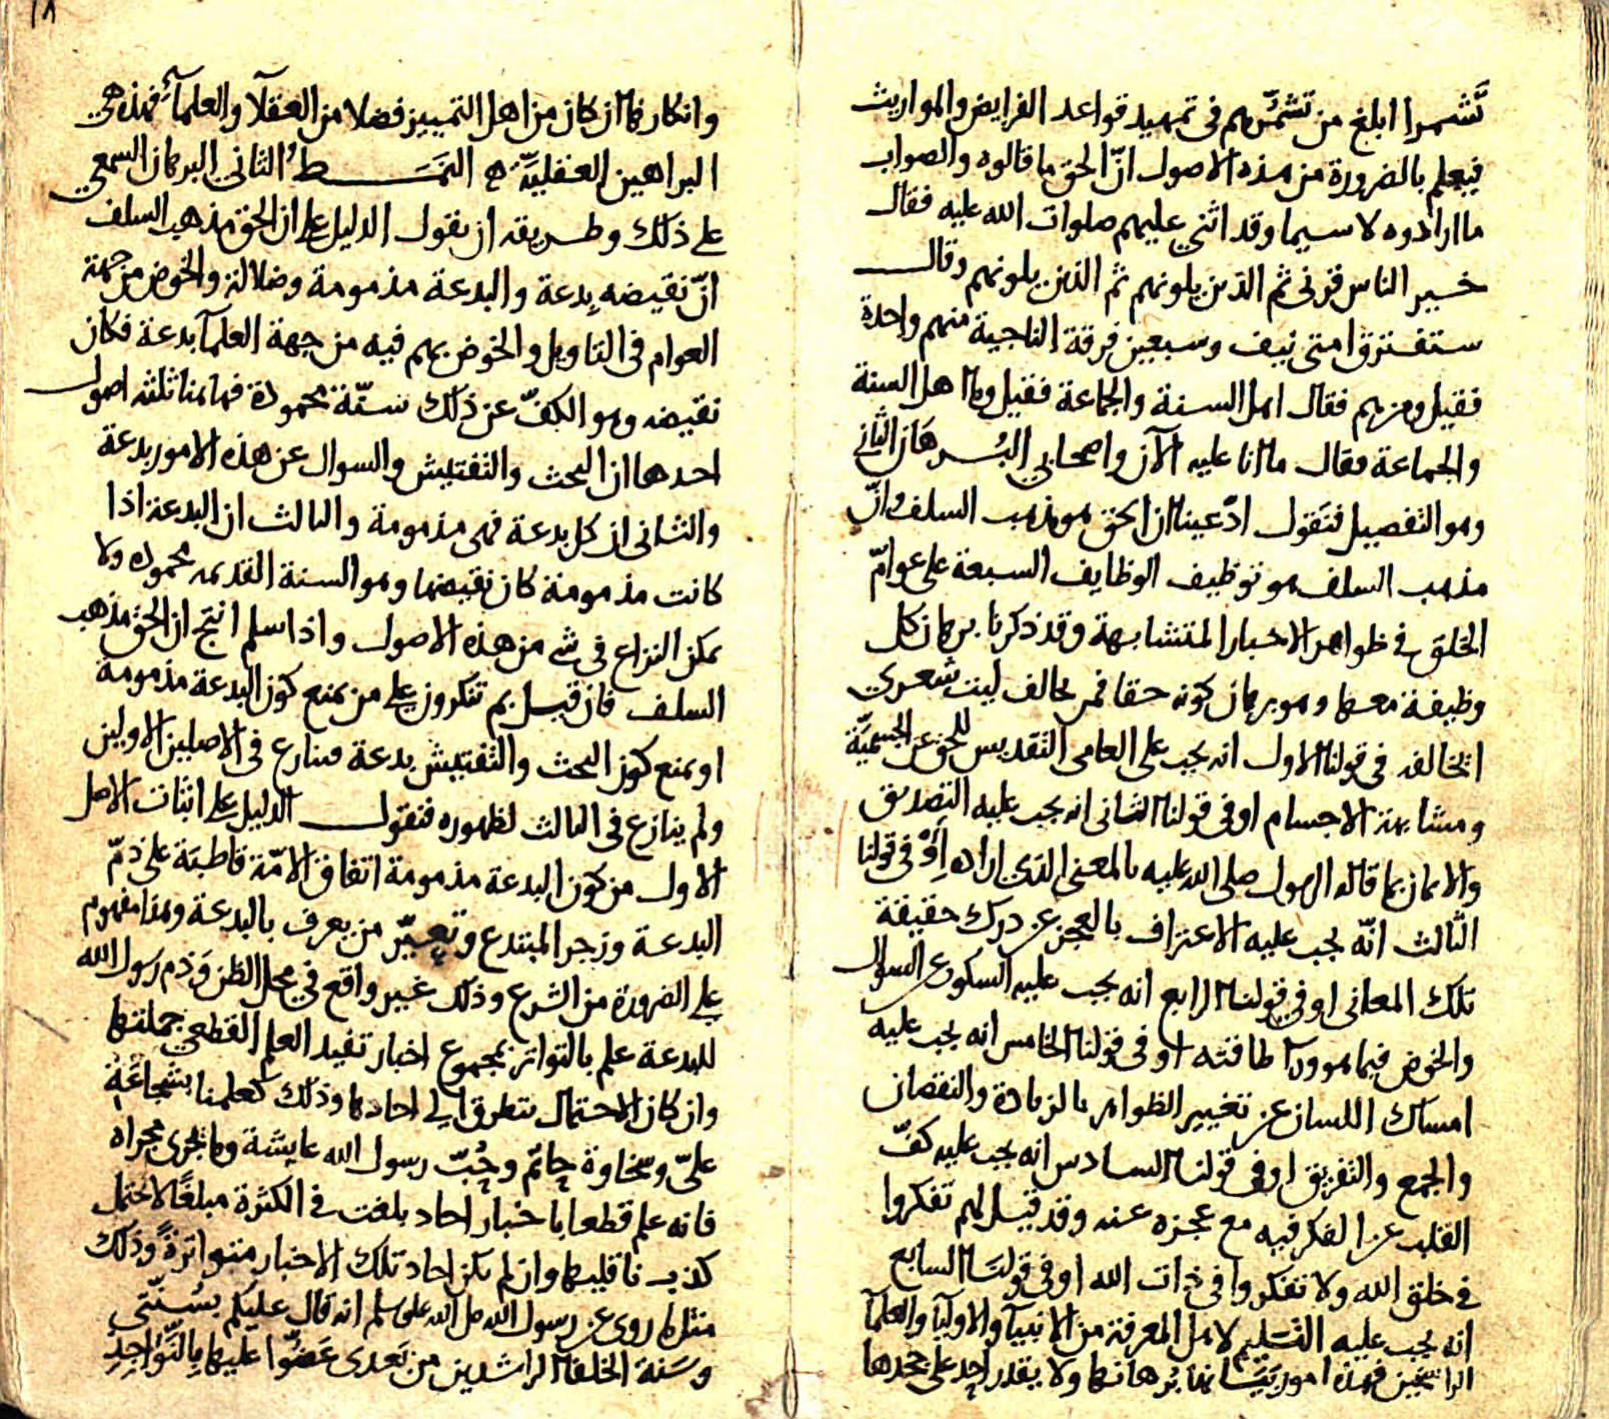 تشمرا ابلغ من تشمّرهم فى تمهيد قواعد الفرايض والمواريث
فيعلم بالضرورة من هذه الاصول انّ الحق ما قالوه والصواب
ما ارادوه لا سيما وقد اثنى عليهم صلوات الله عليه فقال
خير الناس قرنى ثم الذين يلونهم ثم الذين يلونهم وقال
ستفترق امتى نيف وسبعين فرقة الناجية منهم واحدة
فقيل ومن هم فقال اهل السنة والجماعة فقيل وما اهل السنة
والجماعة فقال ما انا عليه الآن واصحابى البرهان الثانى
وهو التفصيل فنقول ادّعينا ان الحق هو مذهب السلف وانّ
مذهب السلف هو توظيف الوظايف السبعة على عوامّ
الخلق فى ظواهر الاخبار المتشابهة وقد ذكرنا برهان كل
وظيفة معها وهو برهان كونه حقا فمن يخالف ليت شعرى
ايخالف فى قولنا الاول انه يجب على العامى التقديس للحق عن الجسميّة
ومشابهة الاجسام او فى قولنا الثانى انه يجب عليه التصديق
والايمان بما قاله الرسول صلى الله عليه بالمعنى الذى اراده أَوْ فى قولنا
الثالث انّه يجب عليه الاعتراف بالعجز عن درك حقيقة
تلك المعانى او فى قولنا الرابع انه يجب عليه السكوت عن السوال
والخوض فيما هو ورآ طاقته او فى قولنا الخامس انه يجب عليه
امساك اللسان عن تغيير الظواهر بالزيادة والنقصان
والجمع والتفريق او فى قولنا السادس انه يجب عليه كفّ
القلب عن الفكر فيه مع عجزه عنه وقد قيل لهم تفكروا
فى خلق الله ولا تفكروا فى ذات الله او فى قولنا السابع
انه يجب عليه التسليم لاهل المعرفة من الانبيآ والاوليآ والعلمآ
الراسخين فهذه امور بيانها برهانها ولا يقدر احد على جحدها
١٨
وانكارها ان كان من اهل التمييز فضلا من العقلآ والعلمآء فهذه هى
البراهين العقليّة النمط الثانى البرهان السمعى
على ذلك وطريقه ان يقول الدليل على ان الحق مذهب السلف
انّ نقيضه بدعة والبدعة مذمومة وضلالة والخوض من جهة
العوام فى التاويل والخوض بهم فيه من جهة العلمآ بدعة فكان
نقيضه وهو الكفّ عن ذلك سنّة محمودة فهاهنا ثلثه اصول
احدها ان البحث والتفتيش والسوال عن هذه الامور بدعة
والثانى ان كل بدعة فهى مذمومة والثالث ان البدعة اذا
كانت مذمومة كان نقيضها وهو السنة القديمه محموده ولا
يمكن النزاع فى شى من هذه الاصول واذا سلم انتج ان الحق مذهب
السلف فان قيل بم تنكرون على من يمنع كون البدعة مذمومة
او يمنع كون البحث والتفتيش بدعة فينازع فى الاصلين الاولين
ولم ينازع فى الثالث لظهوره فنقول الدليل على اثبات الاصل
الاول من كون البدعة مذمومة اتفاق الامّة قاطبة على ذمّ
البدعة وزجر المبتدع وتعيير من يعرف بالبدعة وهذا مفهوم
على الضرورة من الشرع وذلك غير واقع فى محل الظن وَذم رسول الله
للبدعة علم بالتواتر بمجموع اخبار تفيد العلم القطعى جملتها
وان كان الاحتمال يتطرق الى احادها وذلك كعلمنا بشجاعة
علىّ وسخاوة حاتم وحُبّ رسول الله عايشة وما يجرى مجراه
فانه علم قطعا باخبار احاد بلغت فى الكثرة مبلغًا لا يحتمل
كذب ناقليها وان لم يكن احاد تلك الاخبار متواترةً وذلك
مثل ما روى عن رسول الله صلى الله عليه وسلم انه قال عليكم بسُنّتى
وسَنة الخلفا الراشدين من بَعدى عَضّوا عليها بالنّواجِذِ